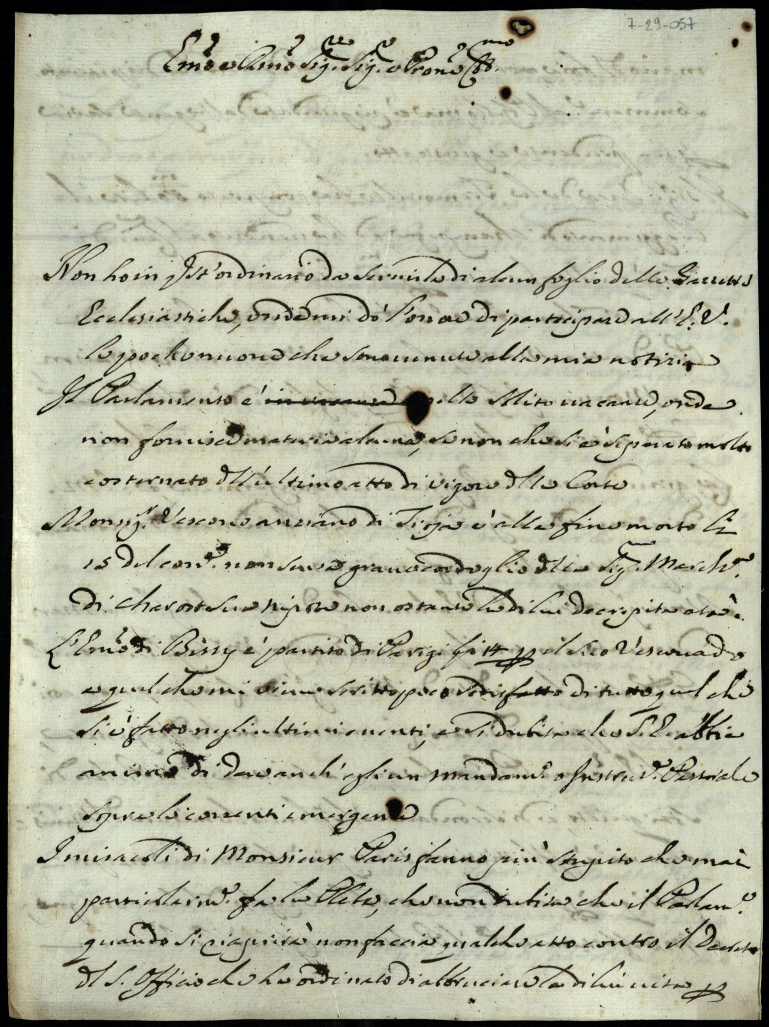 7-29-057
Em.o e R.mo Sig.re Sig.re e Pron.e Col.mo
Non ho in q.st'ordinario da servirla di alcun foglio delle Gazzette
Ecclesiastiche, onde mi dò l'onore di participare all'E. V.
le poche nuove che sono venute alla mia notizia
Il Parlamento è solito vacare, onde
non fornisce materia alcuna, se non che si è separato molto
costernato dell'ultimo atto di vigore della Corte
Monsig.r Vescovo anziano di è alla fine morto li
15 del corr.e non senza grave cordoglio della Sig.ra March.a
di sua nipote non ostante la di lui decrepita età.
L'Em.o di Bissy è partito di Parigi p il suo Vescovado
e quel che mi viene scritto poco sodisfatto di tutto quel che
si è fatto negli ultimi eventi, e si dubita che S. E. abbia
animo di dare anch'egli un mandam.o o Instruz.e Pastorale
sopra le correnti emergenze
I miracoli di Monsieur Paris fanno più strepito che mai
particolarm.e fra la Plebe, che non dubita che il Parlam.o
quando si riaprirà non faccia qualche atto contro il Decreto
del S. Officio che ha ordinato di abbruciare la di lui vita